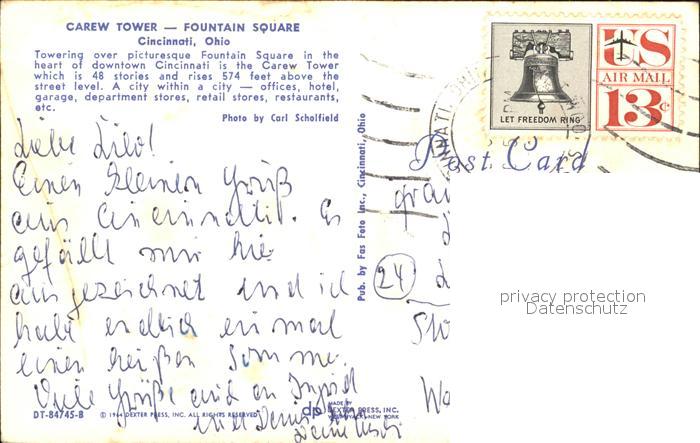 CAREW TOWER — FOUNTAIN SQUARE
Cincinnati, Ohio
Towering over picturesque Fountain Square in the
heart of downtown Cincinnati is the Carew Tower
which is 48 stories and rises 574 feet above the
street level. A city within a city — offices, hotel,
garage, department stores, retail stores, restaurants,
etc.
Photo by Carl Scholfield
Liebe
Einen kleinen Gruß
aus Cincinnati. Es
gefällt mir hie
ausgezeichnet und ich
habe endlich einmal
einen heißen Somme
Viele Grüße auch an Ingrid
und
DT-84745-B
© 1964 DEXTER PRESS, INC. ALL RIGHTS RESERVED
dp
MADE BY
DEXTER PRESS, INC.
WEST NYACK, NEW YORK
Pub. by Fas Foto Inc., Cincinnati, Ohio
Post Card
LET FREEDOM RING
US
AIR MAIL
13c
24
privacy protection
Datenschutz